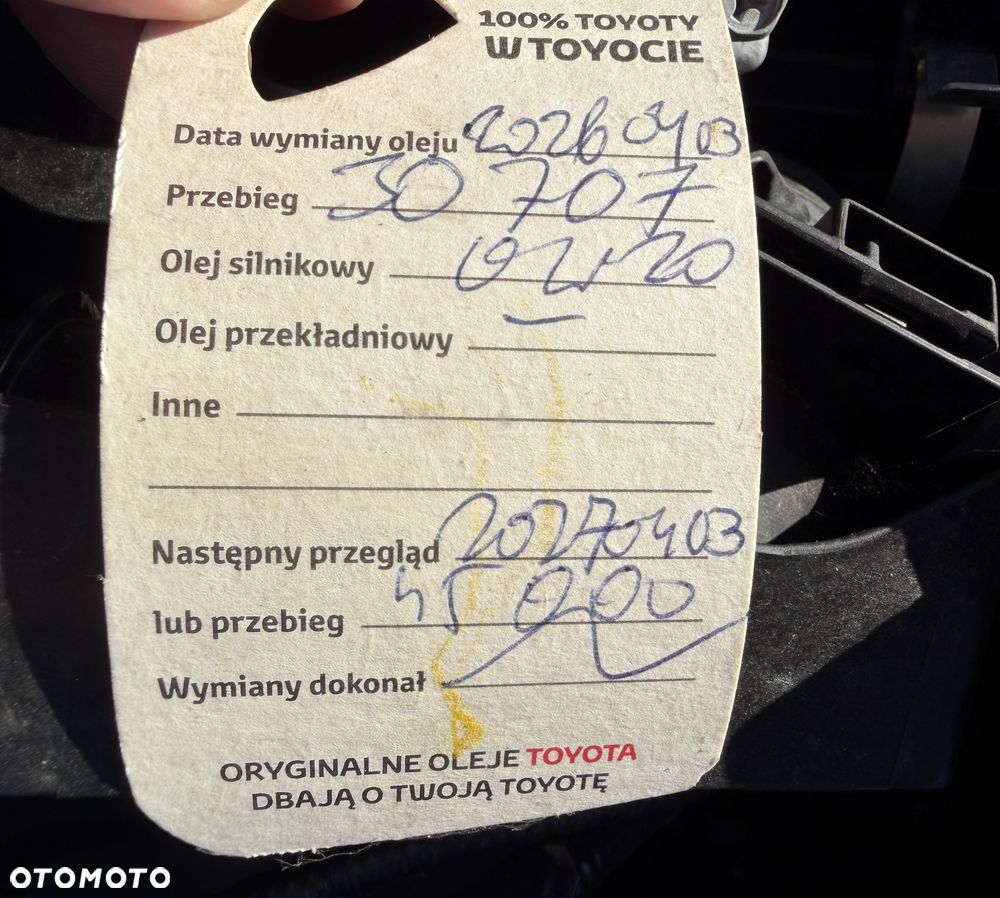 100% TOYOTY
W TOYOCIE
Data wymiany oleju 2026 04 03
Przebieg 30 707
Olej silnikowy 0W20
Olej przekładniowy —
Inne
Następny przegląd 2027 04 03
lub przebieg 45 000
Wymiany dokonał
ORYGINALNE OLEJE TOYOTA
DBAJĄ O TWOJĄ TOYOTĘ
OTOMOTO